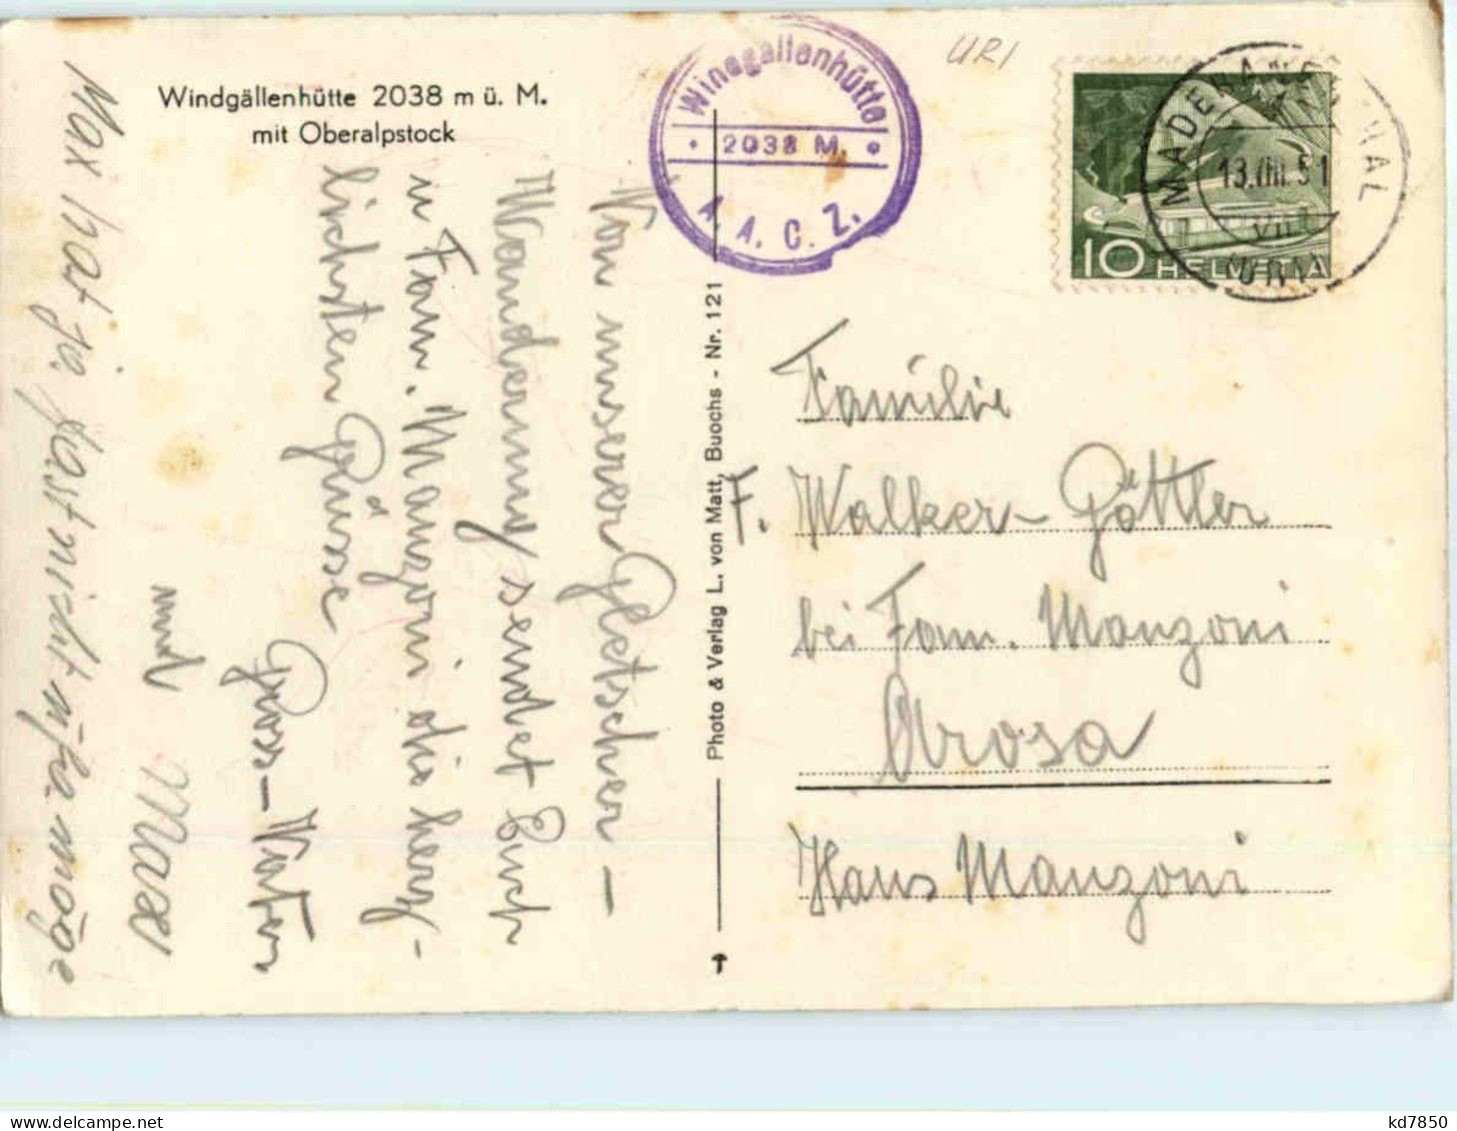 Windgällenhütte 2038 m ü. M.
mit Oberalpstock
Windgällenhütte
2038 M.
A. A. C. Z.
URI
MADERANERTAL
13.VIII.51
(URI)
10 HELVETIA
Von unserer Gletscher-
Wanderung sendet Euch
u Fam. Manzoni die herz-
lichsten Grüsse
Gross-Vater
und Max
Max hat ja fast nicht möge
Photo & Verlag L. von Matt, Buochs - Nr. 121
Familie
F. Walker-Göttler
bei Fam. Manzoni
Arosa
Hans Manzoni
kd7850
DELCAMPE.NET